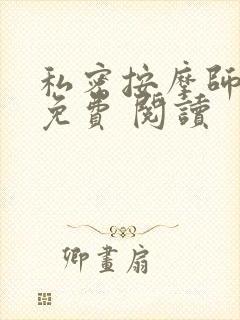 私密按摩師
免費 閱讀
卿畫扇